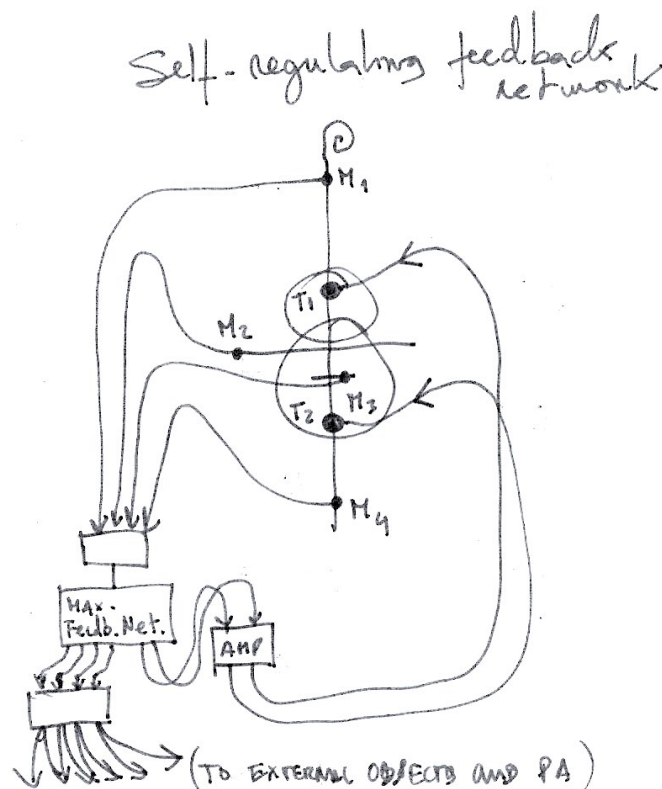 Self-regulating feedback
network
M1
T1
M2
M3
T2
M4
Max.
Feedb. Net.
AMP
(TO EXTERNAL OBJECTS AND PA)